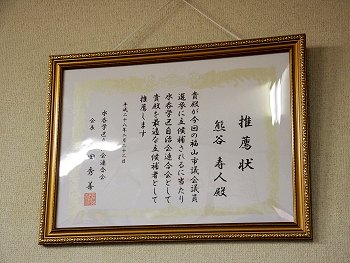 推薦状
熊谷寿人殿
貴殿が今回の福山市議会議員
選挙に立候補されるに当たり
水呑学区自治会連合会として
貴殿を最適な立候補者として
推薦します
平成二十八年
水呑学区
連合会
会長
田秀善